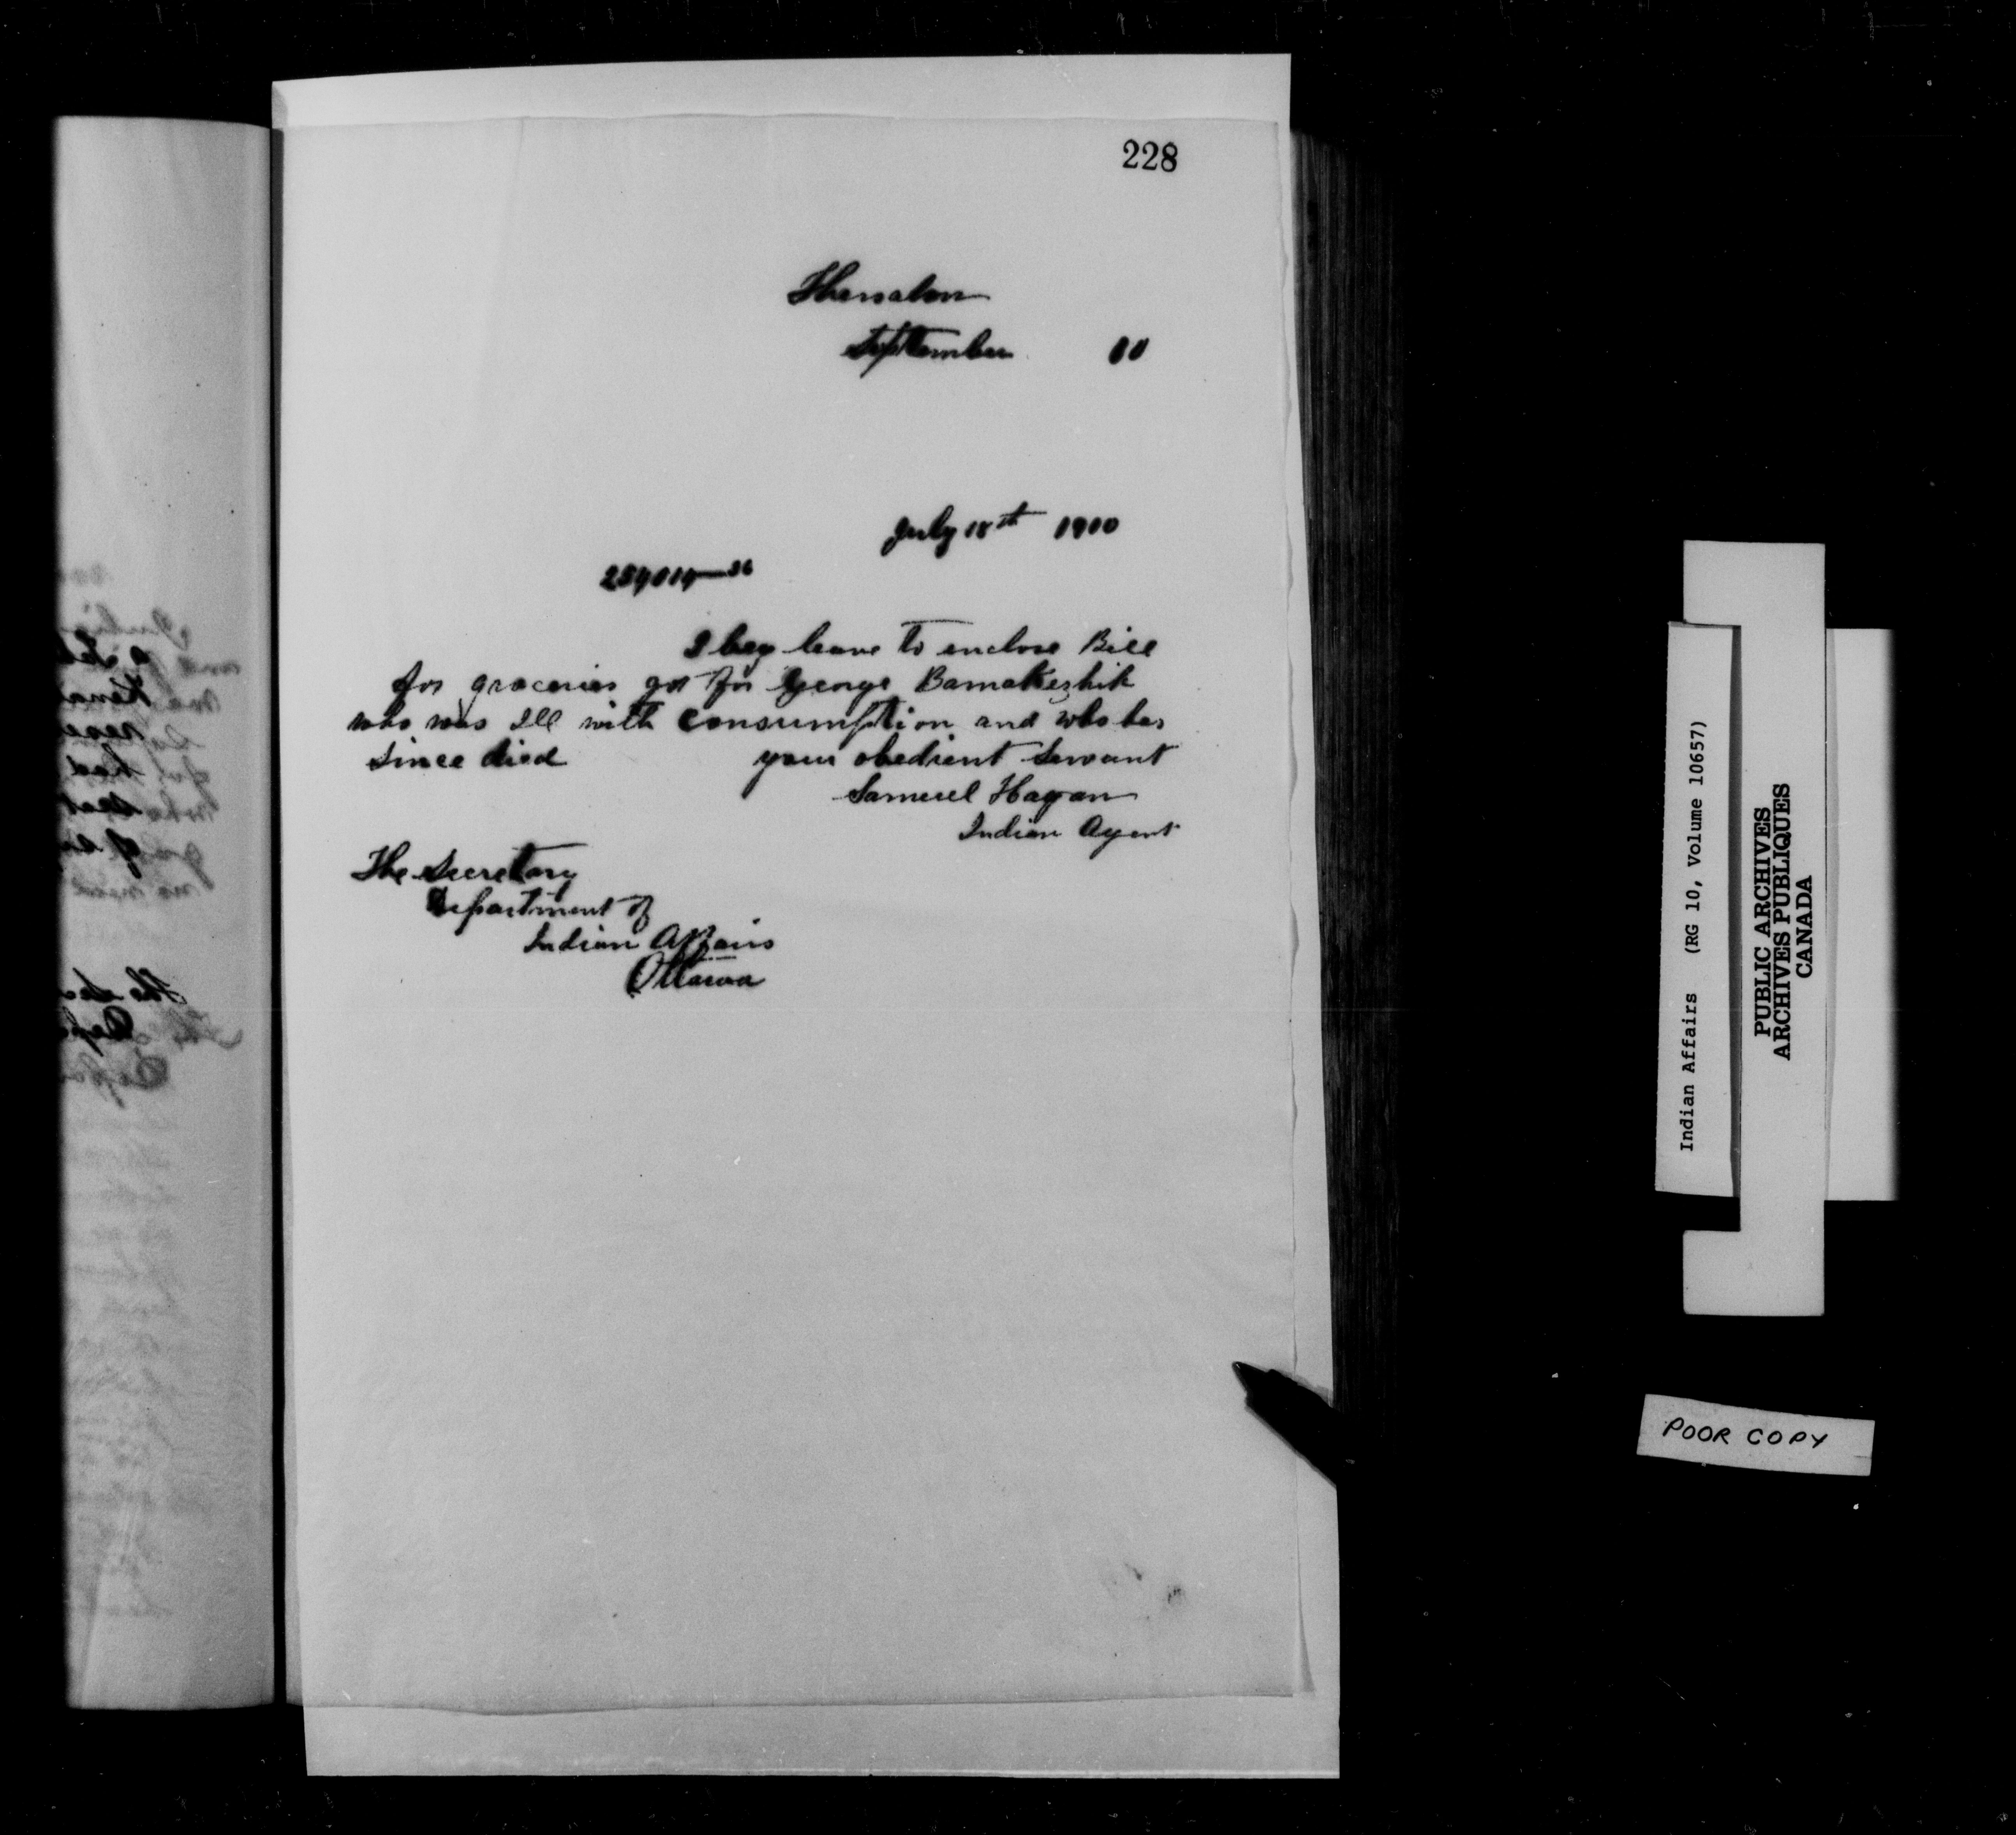 228
Thessalon
September 10
July 18th 1910
254014-36
I beg leave to enclose Bill
for groceries got for George Bamakeshik
who was Ill with Consumption and who has
since died your obedient servant
Samuel Hagan
Indian Agent
The Secretary
Department of
Indian Affairs
Ottawa
Indian Affairs (RG 10, Volume 10657)
PUBLIC ARCHIVES
ARCHIVES PUBLIQUES
CANADA
POOR COPY